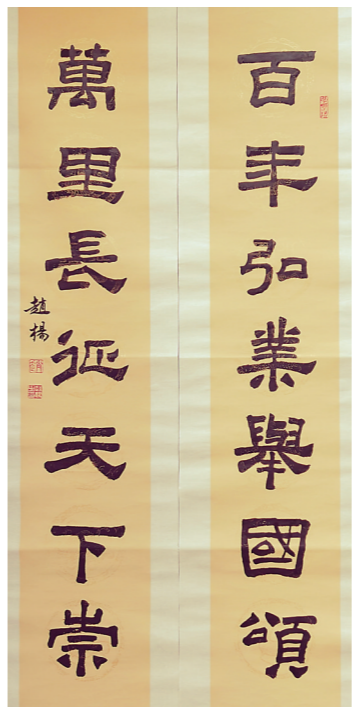 百年弘業舉國頌
萬里長征天下崇
趙楊